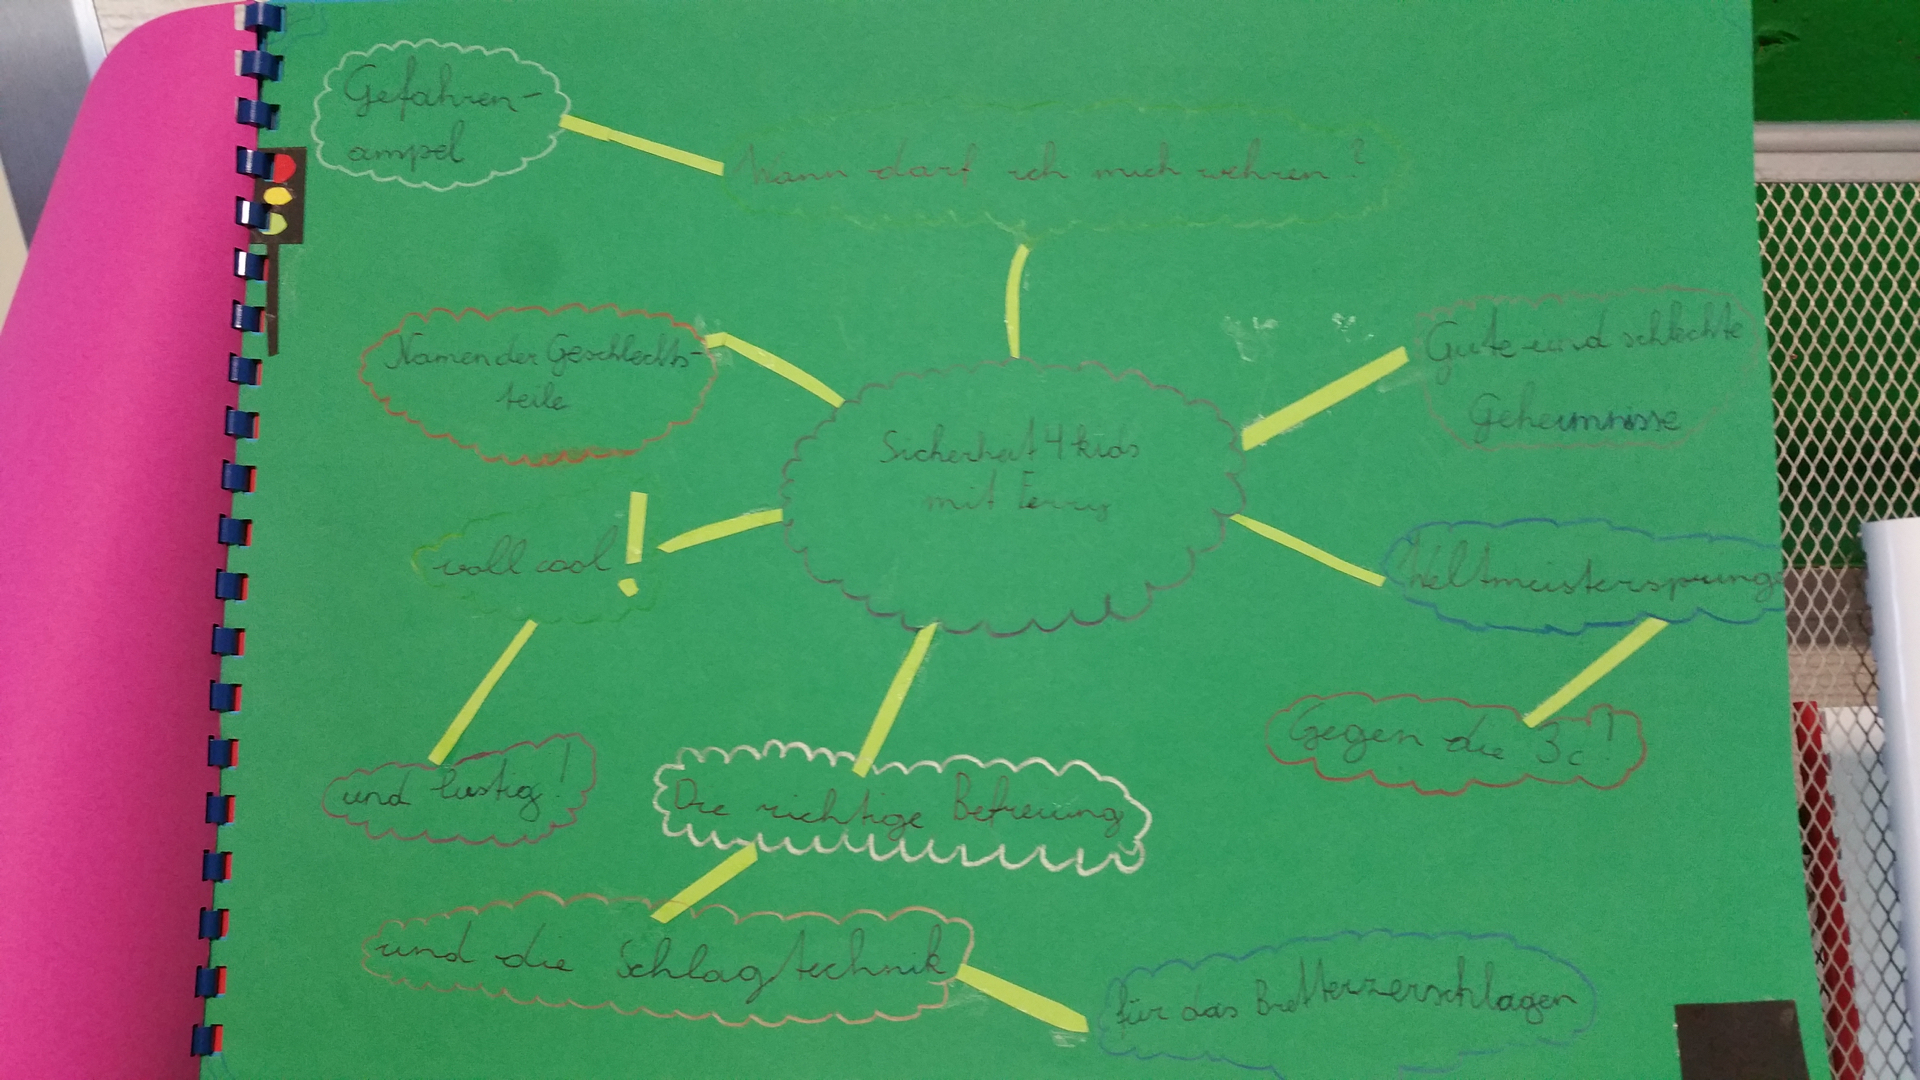 Gefahren-
ampel
Wann darf ich mich wehren?
Namen der Geschlechts-
teile
Gute und schlechte
Geheimnisse
Sicherheit 4 kids
mit Ferry
voll cool!
Weltmeistersprung
und lustig!
Die richtige Befreiung
Gegen die 3c!
und die Schlagtechnik
für das Bretterzerschlagen